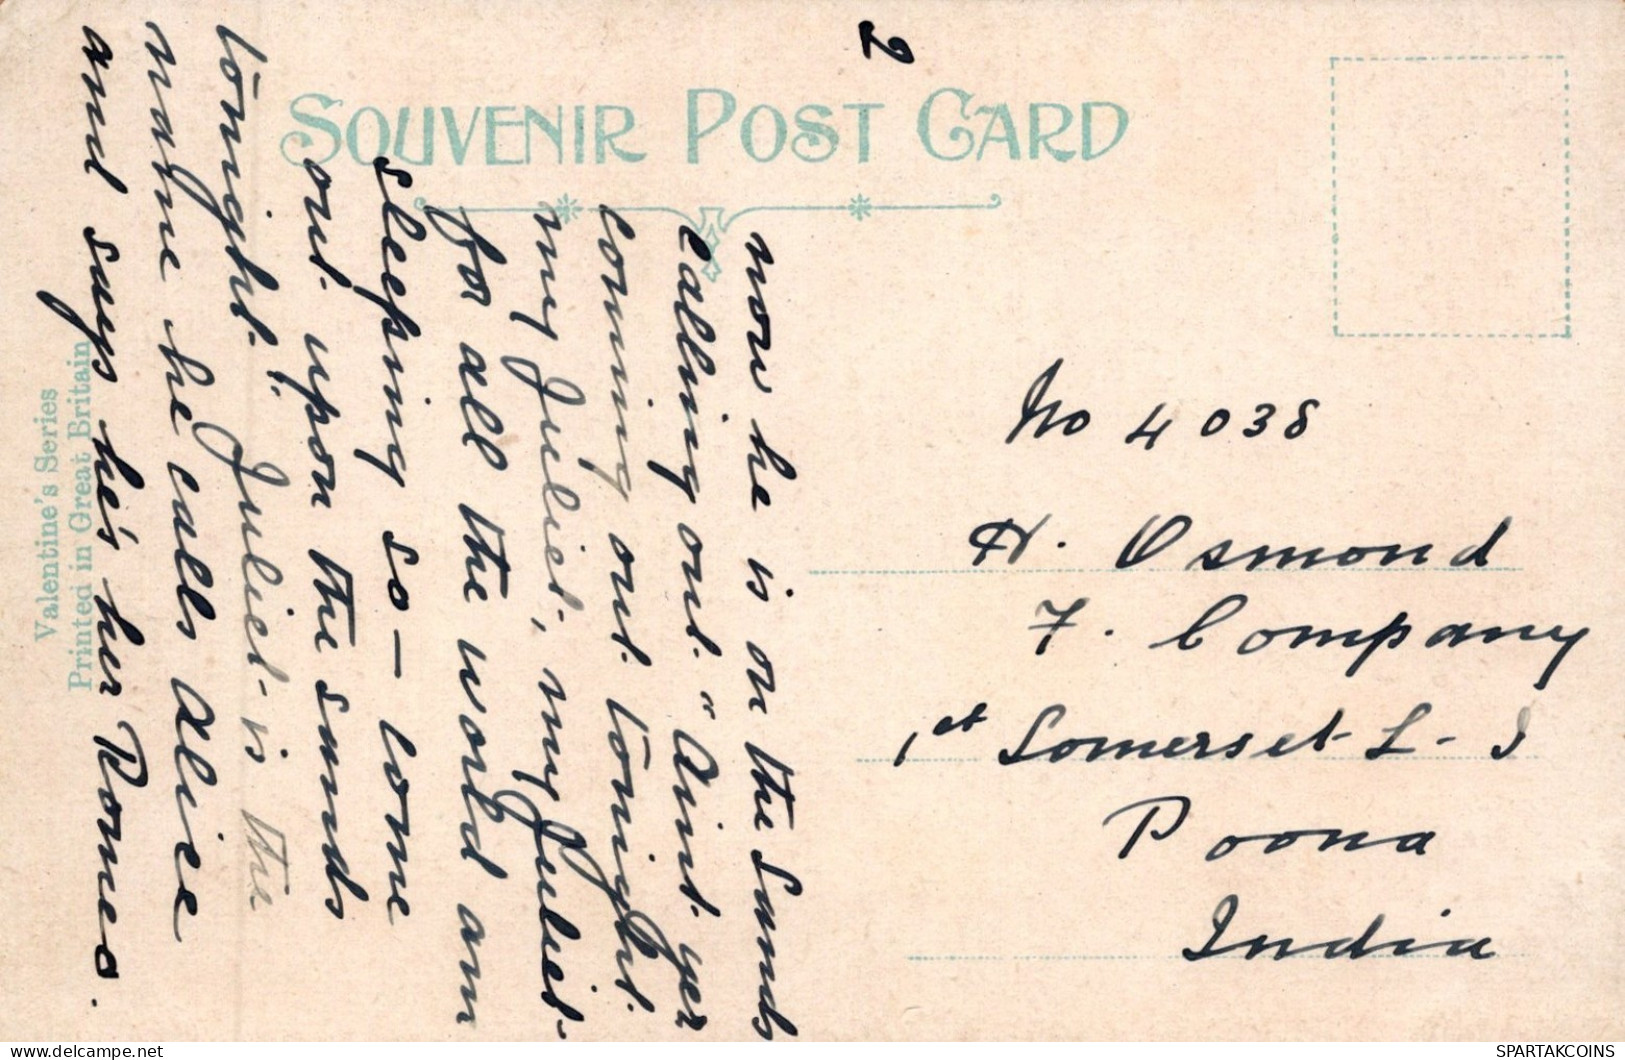 2
SOUVENIR POST CARD
Valentine's Series
Printed in Great Britain
now he is on the Sands
calling out. "Aint yer
coming out tonight.
my Juliet, my Juliet
for all the world am
sleeping so — come
out upon the sands
tonight." Juliet is the
name he calls Alice
and says he's her Romeo.
No 4038
H. Osmond
F. Company
1st Somerset L. I
Poona
India
SPARTAKCOINS
https://www.delcampe.net